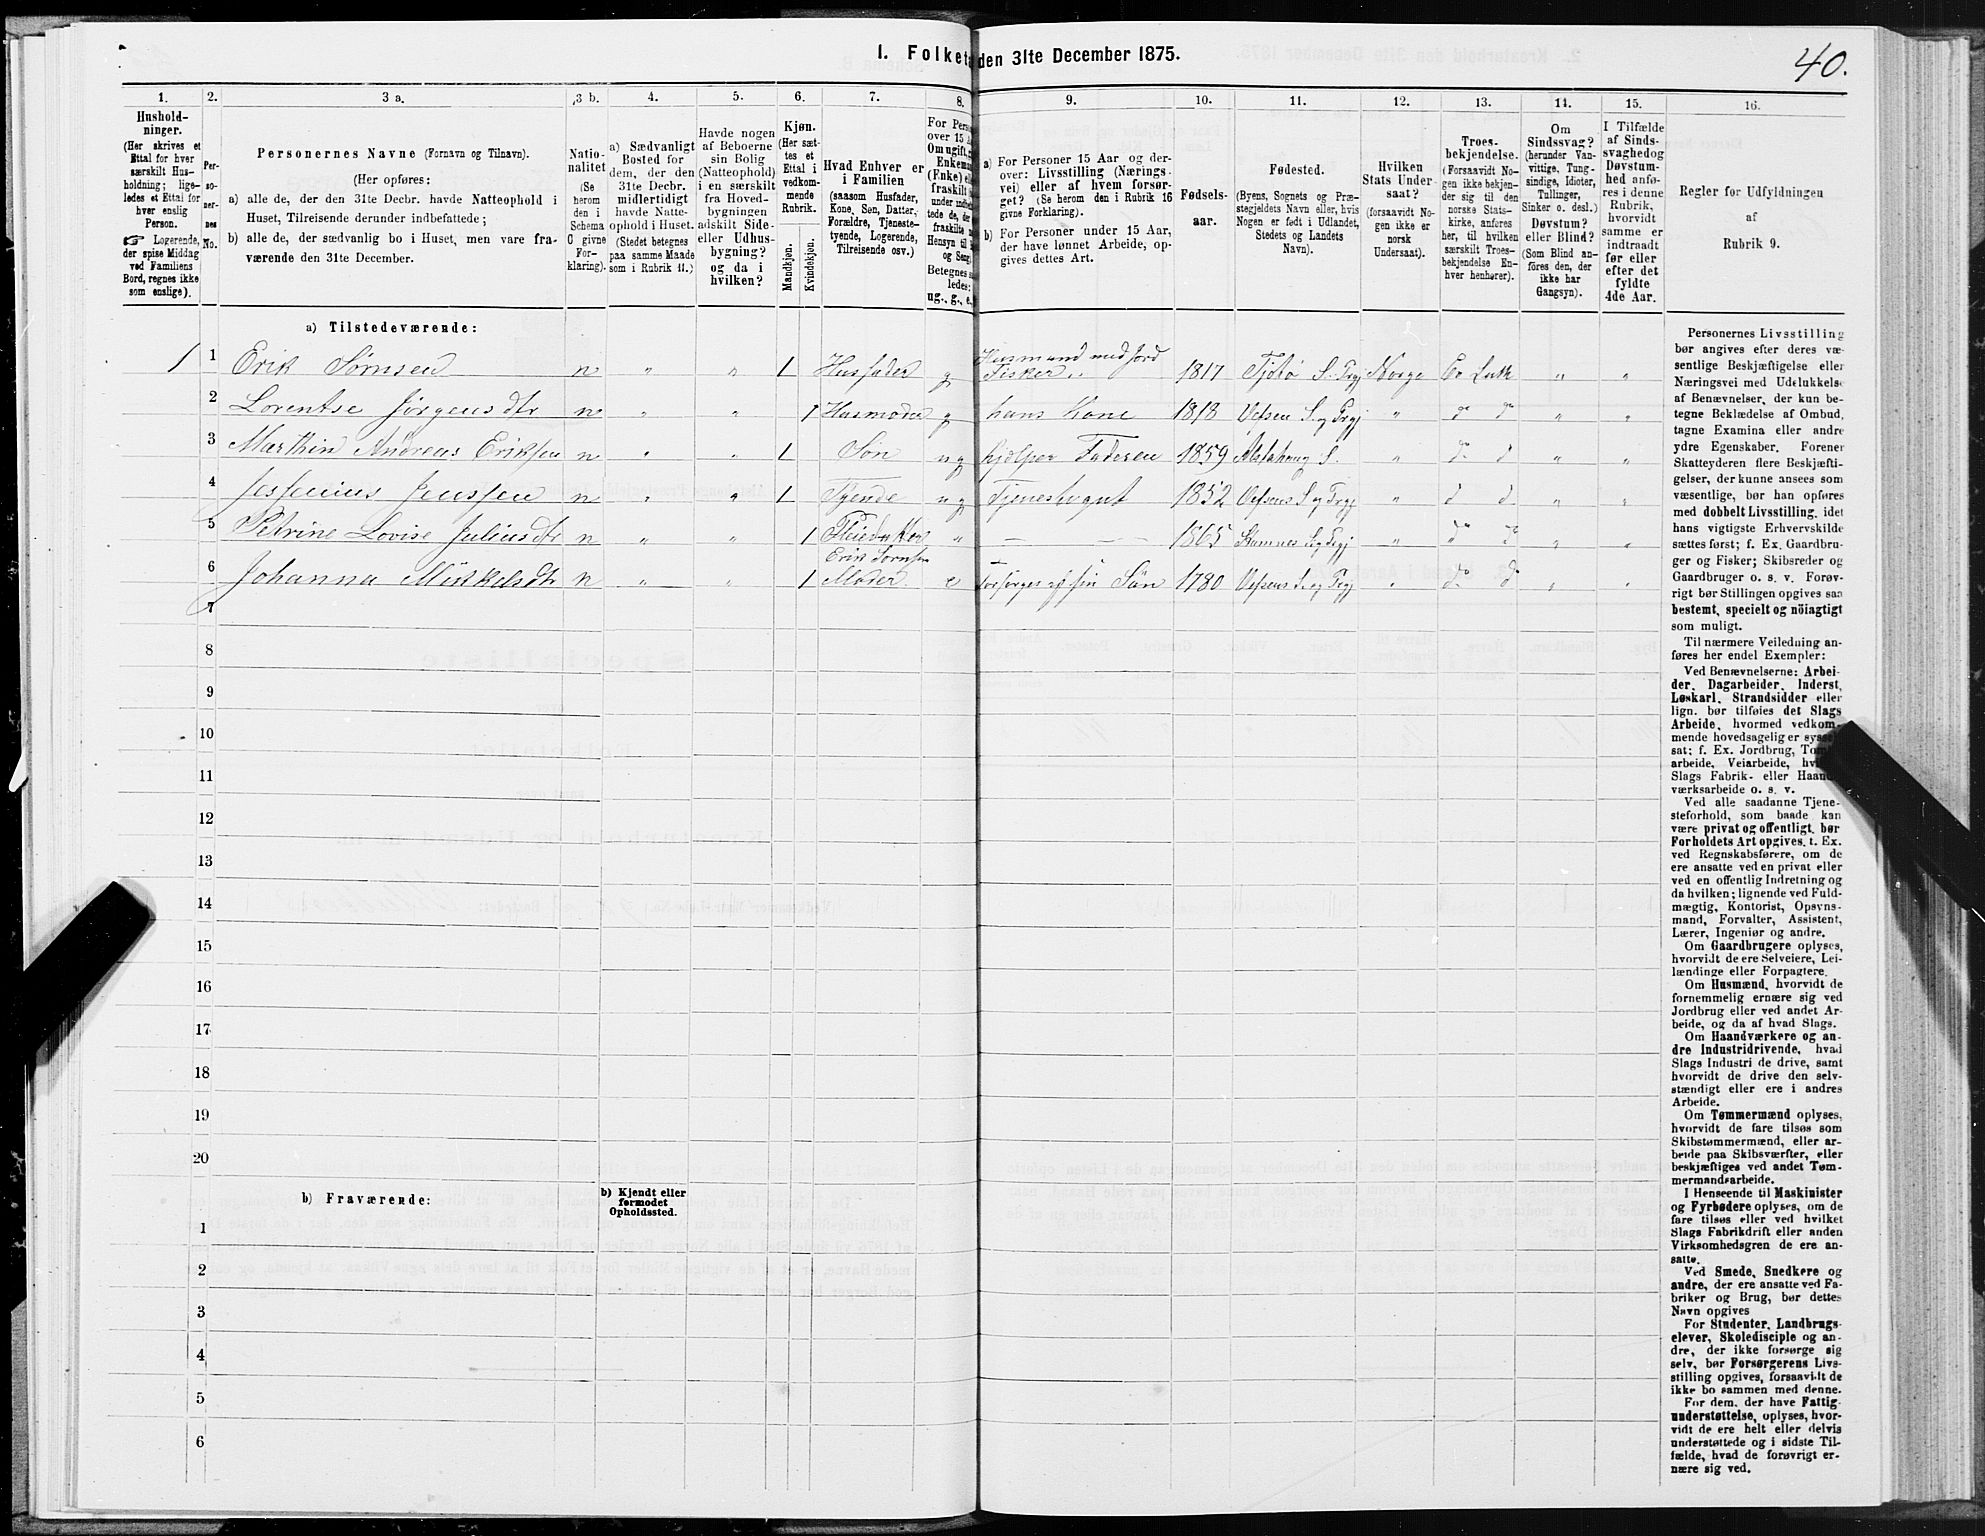 1. Folketa den 31te December 1875.
40.
1.
Hushold-
ninger.
(Her skrives et
Ettal for hver
særskilt Hus-
holdning; lige-
ledes et Ettal for
hver enslig
Person.
☞ Logerende,
der spise Middag
ved Familiens
Bord, regnes ikke
som enslige).
2.
Per-
so-
ner-
nes
No.
3 a.
Personernes Navne (Fornavn og Tilnavn).
(Her opføres:
a) alle de, der den 31te Decbr. havde Natteophold i
Huset, Tilreisende derunder indbefattede;
b) alle de, der sædvanlig bo i Huset, men vare fra-
værende den 31te December.
3 b.
Natio-
nalitet
(Se
herom
den i
Schema
C givne
For-
klaring).
4.
a) Sædvanligt
Bosted for
dem, der den
31te Decbr.
midlertidigt
havde Natte-
ophold i Huset.
(Stedet betegnes
paa samme Maade
som i Rubrik 11.)
5.
Havde nogen
af Beboerne
sin Bolig
(Natteophold)
i en særskilt
fra Hoved-
bygningen
adskilt Side-
eller Udhus-
bygning?
og da i
hvilken?
6.
Kjøn.
(Her sæt-
tes et
Ettal i
vedkom-
mende
Rubrik.
Mandkjøn.
Kvindekjøn.
7.
Hvad Enhver er
i Familien
(saasom Husfader,
Kone, Søn, Datter,
Forældre, Tjeneste-
tyende, Logerende,
Tilreisende osv.)
8.
For Pers
over 15 A
Om ugift, g
Enkema
(Enke) el
fraskilt
under indbe
tede de, d
fraskilte
Hensyn til
og Seng
Betegnes s
ledes:
ug., g., e.,
9.
a) For Personer 15 Aar og der-
over: Livsstilling (Nærings-
vei) eller af hvem forsør-
get? (Se herom den i Rubrik 16
givne Forklaring).
b) For Personer under 15 Aar,
der have lønnet Arbeide, op-
gives dettes Art.
10.
Fødsels-
aar.
11.
Fødested.
(Byens, Sognets og Præ-
stegjeldets Navn eller, hvis
Nogen er født i Udlandet,
Stedets og Landets
Navn).
12.
Hvilken
Stats Under-
saat?
(forsaavidt No-
gen ikke er
norsk
Undersaat).
13.
Troes-
bekjendelse.
(Forsaavidt No-
gen ikke bekjen-
der sig til den
norske Stats-
kirke, anføres
her, til hvilken
særskilt Troes-
bekjendelse En-
hver henhører).
14.
Om
Sindssvag?
(herunder Van-
vittige, Tung-
sindige, Idioter,
Tullinger,
Sinker o. desl.)
Døvstum?
eller Blind?
(Som Blind an-
føres den, der
ikke har
Gangsyn).
15.
I Tilfælde
af Sinds-
svaghed og
Døvstum-
hed anfø-
res i denne
Rubrik,
hvorvidt
samme er
indtraadt
før eller
efter det
fyldte
4de Aar.
16.
Regler for Udfyldningen
af
Rubrik 9.
a) Tilstedeværende:
1 1 Erik Sørnsen n „ „ 1 Husfader g Husmand med Jord Fisker „ 1817 Tjøtø S. Prgj Norge Ev Luth „ „
2 Lorentse Jørgensdtr n „ „ 1 Husmoder g hans Kone 1818 Vefsen S. og Prgj „ do do „ „
3 Marthin Andreas Eriksen n „ „ 1 Søn ug hjælper Faderen 1859 Alstahoug S. „ do d „ „
4 Jessenius Jenssen n „ „ 1 Tyende ug Tjenestegut 1852 Vefsens S og Prgj „ d d „ „
5 Petrine Lovise Juliusdtr n „ „ 1 Pleiedatter „ — — 1865 Stamnes S. og Prgj „ do do „ „
Erik Sørnsen
6 Johanna Mikkelsdtr n „ „ 1 Moder e forsørges af sin Søn 1780 Vefsens S. og Prgj „ do do „ „
7
8
9
10
11
12
13
14
15
16
17
18
19
20
b) Fraværende:
b) Kjendt eller
formodet
Opholdssted.
1
2
3
4
5
6
Personernes Livsstilling
bør angives efter deres væ-
sentlige Beskjæftigelse eller
Næringsvei med Udelukkelse
af Benævnelser, der kun be-
tegne Beklædelse af Ombud,
tagne Examina eller andre
ydre Egenskaber. Forener
Skatteyderen flere Beskjæfti-
gelser, der kunne ansees som
væsentlige, bør han opføres
med dobbelt Livsstilling, idet
hans vigtigste Erhvervskilde
sættes først; f. Ex. Gaardbru-
ger og Fisker; Skibsreder og
Gaardbruger o. s. v. Forøv-
rigt bør Stillingen opgives saa
bestemt, specielt og nöiagtigt
som muligt.
Til nærmere Veiledning an-
føres her endel Exempler:
Ved Benævnelserne: Arbei-
der, Dagarbeider, Inderst,
Løskarl, Strandsidder eller
lign. bør tilføies det Slags
Arbeide, hvormed vedkom-
mende hovedsagelig er syssel
sat; f. Ex. Jordbrug, Tom
arbeide, Veiarbeide, hvi
Slags Fabrik- eller Haand
værksarbeide o. s. v.
Ved alle saadanne Tjene-
steforhold, som baade kan
være privat og offentligt, bør
Forholdets Art opgives, t. Ex.
ved Regnskabsførere, om de
ere ansatte ved en privat eller
ved en offentlig Indretning og
da hvilken; lignende ved Fuld-
mægtig, Kontorist, Opsyns-
mand, Forvalter, Assistent,
Lærer, Ingeniør og andre.
Om Gaardbrugere oplyses,
hvorvidt de ere Selveiere, Lei-
lændinge eller Forpagtere.
Om Husmænd, hvorvidt de
fornemmelig ernære sig ved
Jordbrug eller ved andet Ar-
beide, og da af hvad Slags.
Om Haandværkere og an-
dre Industridrivende, hvad
Slags Industri de drive, samt
hvorvidt de drive den selv-
stændigt eller ere i andres
Arbeide.
Om Tømmermænd oplyses,
hvorvidt de fare tilsøs som
Skibstømmermænd, eller ar-
beide paa Skibsværfter, eller
beskjæftiges ved andet Tøm-
mermandsarbeide.
I Henseende til Maskinister
og Fyrbødere oplyses, om de
fare tilsøs eller ved hvilket
Slags Fabrikdrift eller anden
Virksomhedsgren de ere an-
satte.
Ved Smede, Snedkere og
andre, der ere ansatte ved Fa-
briker og Brug, bør dettes
Navn opgives
For Studenter, Landbrugs-
elever, Skoledisciple og an-
dre, der ikke forsørge sig
selv, bør Forsørgerens Livs-
stilling opgives, forsaavidt de
ikke bo sammen med denne.
For dem, der have Fattig-
understøttelse, oplyses, hvor-
vidt de ere helt eller delvis
understøttede og i sidste Til-
fælde, hvad de forøvrigt er-
nære sig ved.